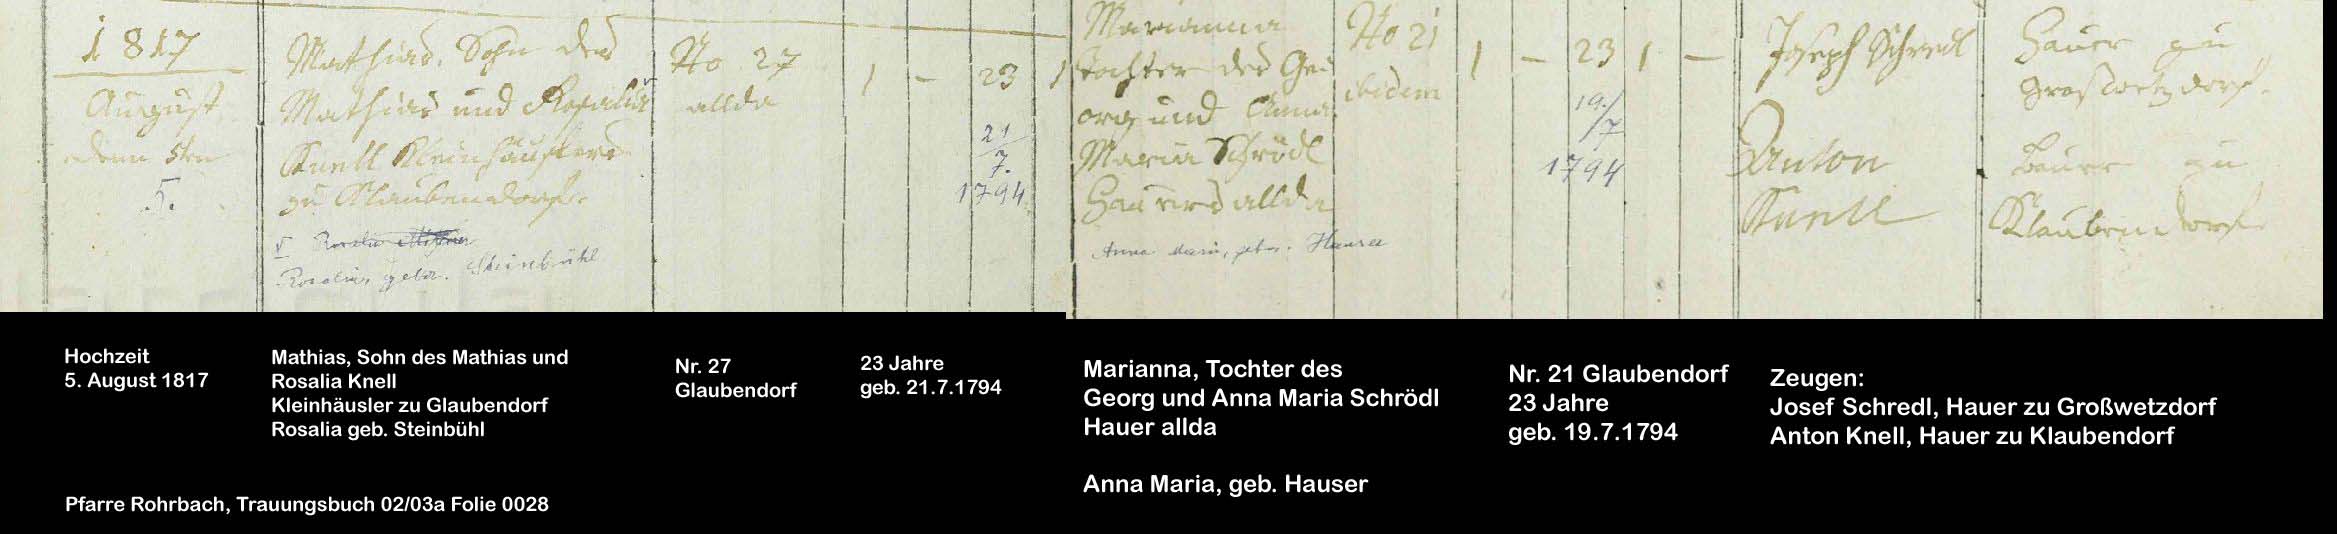 1817
August
5.
Mathias, Sohn des
Mathias und Rosalia
Knell Kleinhäuslers
zu Klaubendorf.
Rosalia, geb. Steinbühl
No 27
allda
1 - 23 1
21/7.
1794
Marianna
Tochter des Ge
org und Anna
Maria Schrödl
Hauers allda
Anna Maria, geb. Hauser
No 21
ibidem
1 - 23 1 -
19./7
1794
Joseph Schredl
Anton
Knell
Hauer zu
Großwetzdorf.
Bauer zu
Klaubendorf.
Hochzeit
5. August 1817
Mathias, Sohn des Mathias und
Rosalia Knell
Kleinhäusler zu Glaubendorf
Rosalia geb. Steinbühl
Nr. 27
Glaubendorf
23 Jahre
geb. 21.7.1794
Marianna, Tochter des
Georg und Anna Maria Schrödl
Hauer allda
Anna Maria, geb. Hauser
Nr. 21 Glaubendorf
23 Jahre
geb. 19.7.1794
Zeugen:
Josef Schredl, Hauer zu Großwetzdorf
Anton Knell, Hauer zu Klaubendorf
Pfarre Rohrbach, Trauungsbuch 02/03a Folie 0028